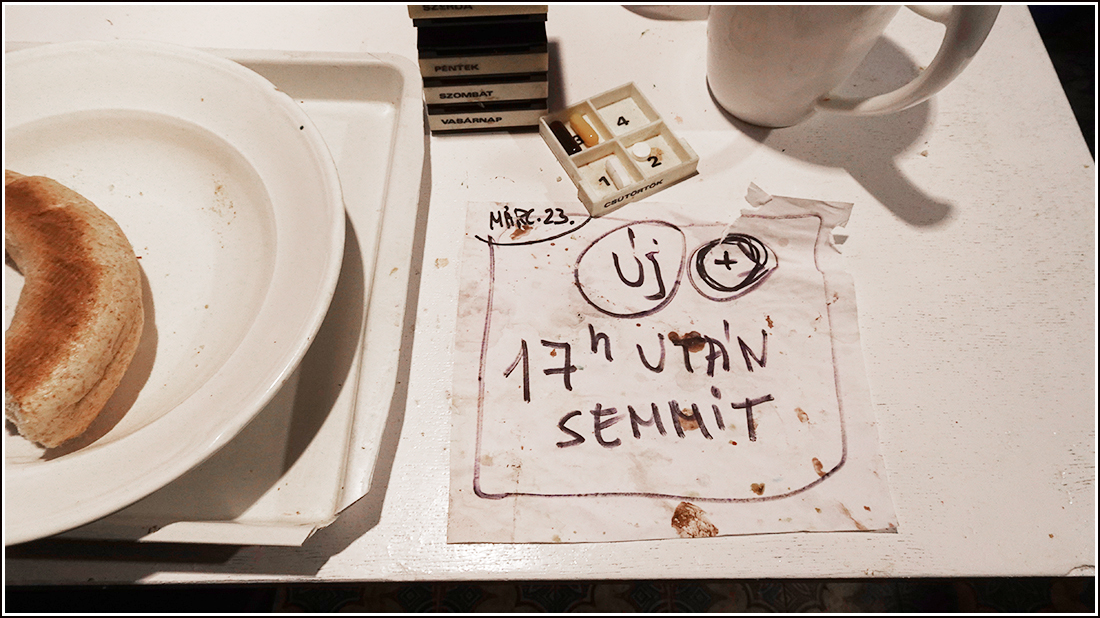 SZERDA
PÉNTEK
SZOMBAT
VASÁRNAP
4
1
2
CSÜTÖRTÖK
MÁRC. 23.
ÚJ
+
17h UTÁN
SEMMIT